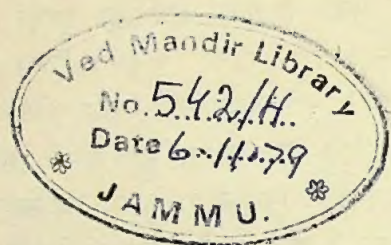 Ved Mandir Library
No. 542/H.
Date 6-11-79
JAMMU.